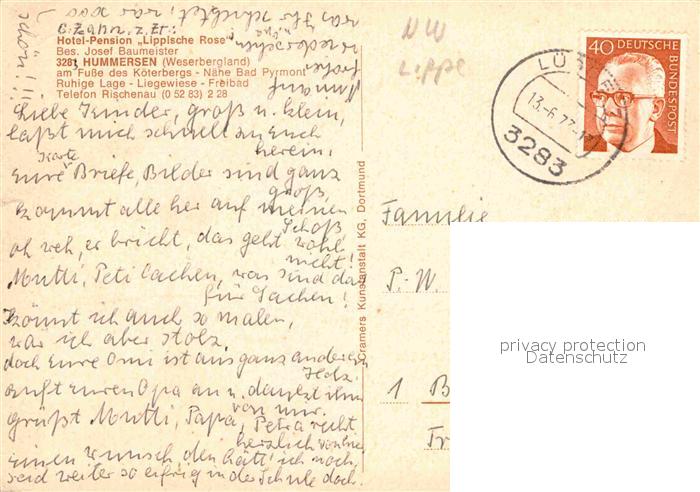 z.Zt. 
Hotel-Pension „Lippische Rose"
Bes. Josef Baumeister
3281 HUMMERSEN (Weserbergland)
am Fuße des Köterbergs - Nähe Bad Pyrmont
Ruhige Lage - Liegewiese - Freibad
Telefon Rischenau (0 52 83) 2 28
Liebe Kinder, groß u. klein,
laßt mich schnell zu Euch
herein.
Karte
Eure Briefe, Bilder sind ganz
groß,
kommt alle her auf meinen
Schoß
oh weh, er bricht, das geht wohl
nicht!
Mutti, Peti lachen, was sind da
für Sachen!
Könnt ich auch so malen,
wär ich aber stolz,
doch Eure Omi ist aus ganz anderem
Holz.
Ruft Euren Opa an u. dankt ihm
von mir.
grüßt Mutti, Papa, Petra recht
herzlich von mir
Einen Wunsch den hätt' ich noch,
seid weiter so eifrig in der Schule doch.
Nun auf
frohes
Wiedersehen
was Ihr schriebtet, war sooo
schön!!!
Cramers Kunstanstalt KG, Dortmund
NW
Lippe
40 DEUTSCHE
BUNDESPOST
13.-6.77-
3283
Familie
P. W.
1 B
Fr
privacy protection
Datenschutz